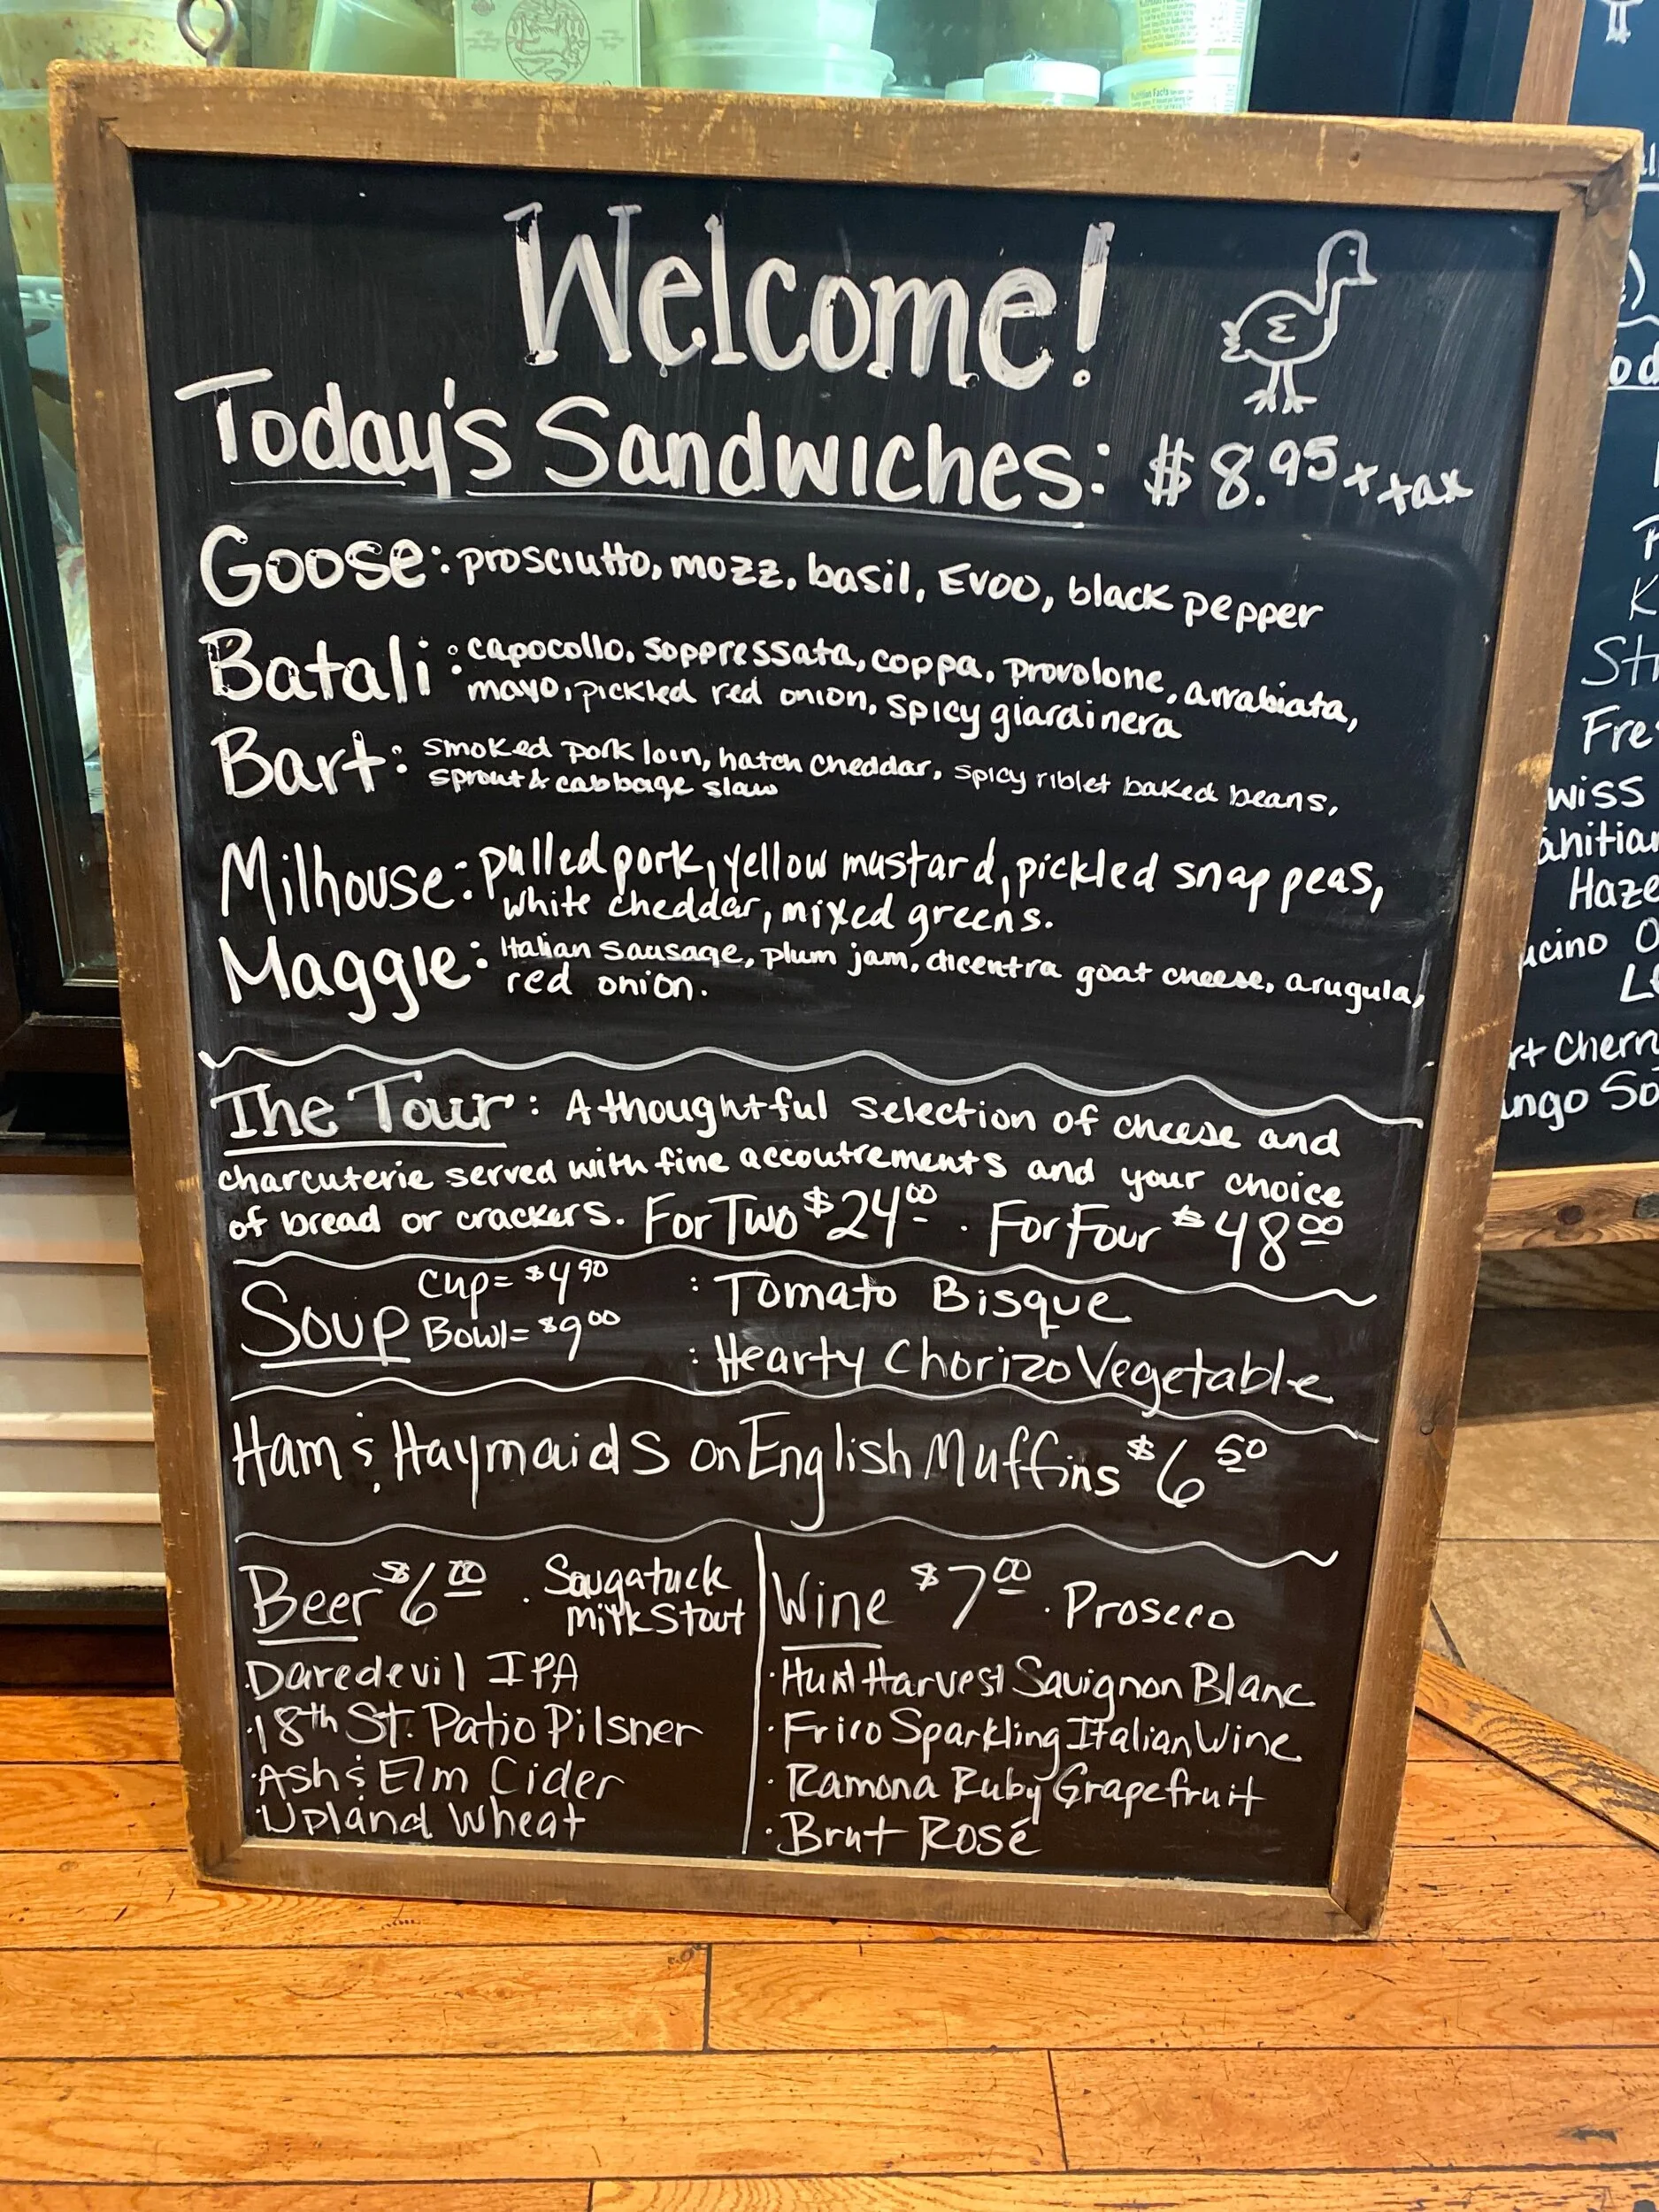 Welcome!
Today's Sandwiches: $8.95 + tax
Goose: prosciutto, mozz, basil, EVOO, black pepper
Batali: capocollo, soppressata, coppa, provolone, arrabiata,
mayo, pickled red onion, spicy giardinera
Bart: smoked pork loin, hatch cheddar, spicy riblet baked beans,
sprout & cabbage slaw
Milhouse: pulled pork, yellow mustard, pickled snap peas,
white cheddar, mixed greens.
Maggie: Italian sausage, plum jam, dicentra goat cheese, arugula,
red onion.
The Tour: A thoughtful selection of cheese and
charcuterie served with fine accoutrements and your choice
of bread or crackers. For Two $24.00 · For Four $48.00
Soup Cup= $4.90 : Tomato Bisque
Bowl= $9.00 : Hearty Chorizo Vegetable
Ham & Haymaids on English Muffins $6.50
Beer $6.00 · Saugatuck
Milk Stout
· Daredevil IPA
· 18th St. Patio Pilsner
· Ash & Elm Cider
· Upland Wheat
Wine $7.00 · Prosecco
· Hunt Harvest Sauvignon Blanc
· Frico Sparkling Italian Wine
· Ramona Ruby Grapefruit
· Brut Rosé